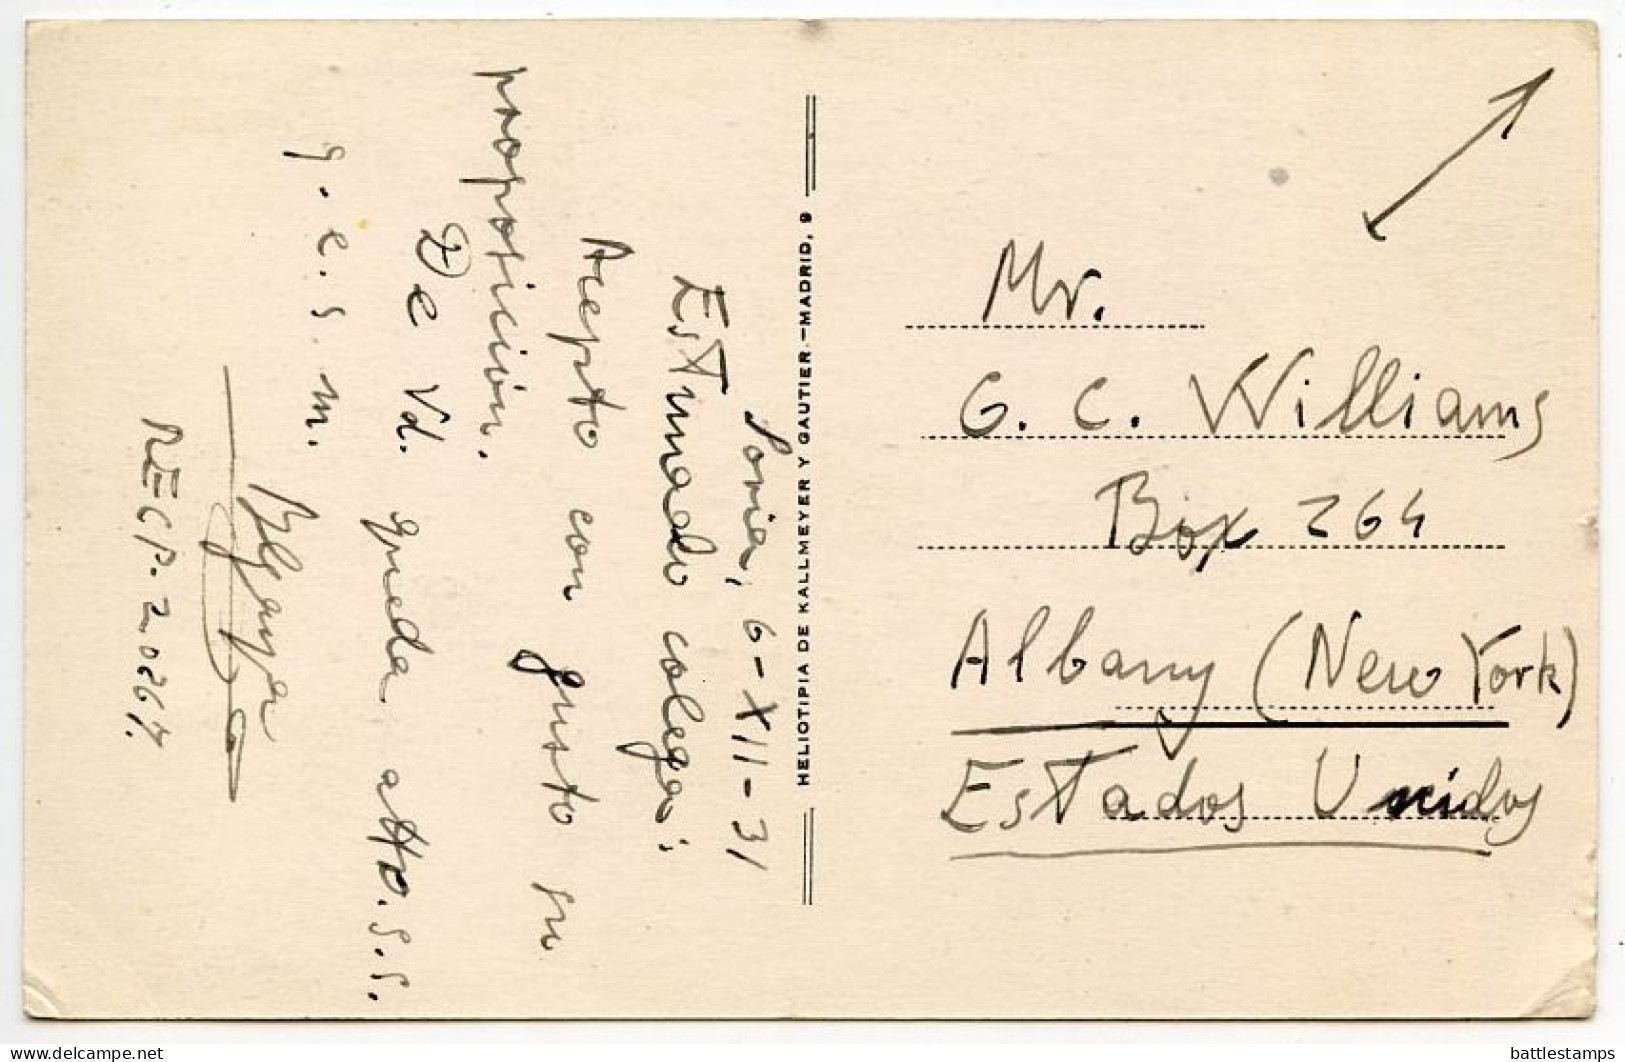 Soria, 6-XII-31
Estimado colega:
Acepto con gusto su
proposición.
De Vd. queda atto. s.s.
q.e.s.m.
RECP. 2.0267.
HELIOTIPIA DE KALLMEYER Y GAUTIER.—MADRID, 9
Mr.
G. C. Williams
Box 264
Albany (New York)
Estados Unidos
delcampe.net
battlestamps